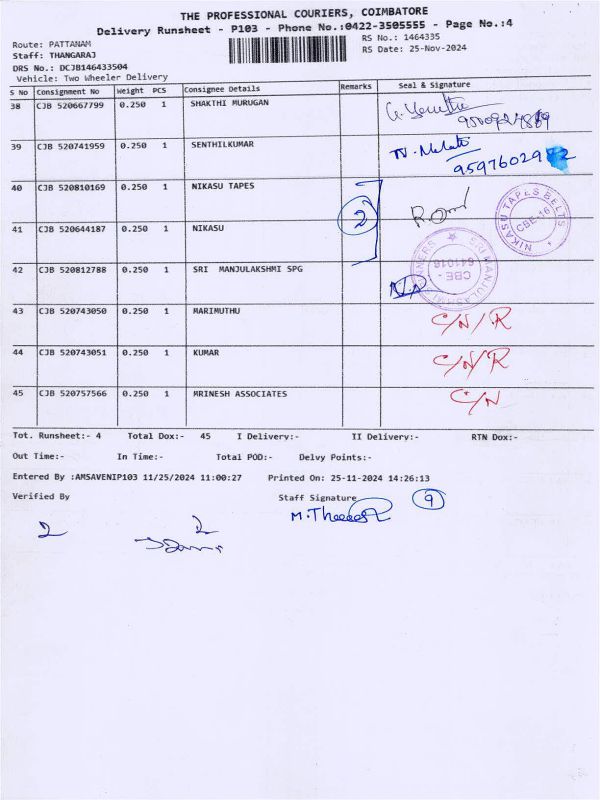 THE PROFESSIONAL COURIERS, COIMBATORE
Delivery Runsheet - P103 - Phone No.:0422-3505555 - Page No.:4
Route: PATTANAM
RS No.: 1464335
Staff: THANGARAJ
RS Date: 25-Nov-2024
DRS No.: DCJB146433504
Vehicle: Two Wheeler Delivery
S No Consignment No Weight PCS Consignee Details Remarks Seal & Signature
38 CJB 520667799 0.250 1 SHAKTHI MURUGAN
39 CJB 520741959 0.250 1 SENTHILKUMAR
40 CJB 520810169 0.250 1 NIKASU TAPES
2
NIKASU TAPES BELTS
CBE-16
41 CJB 520644187 0.250 1 NIKASU
42 CJB 520812788 0.250 1 SRI MANJULAKSHMI SPG
SRI MANJULAKSHMI
CBE-
641016
43 CJB 520743050 0.250 1 MARIMUTHU C/N/R
44 CJB 520743051 0.250 1 KUMAR C/N/R
45 CJB 520757566 0.250 1 MRINESH ASSOCIATES C/N
Tot. Runsheet:- 4 Total Dox:- 45 I Delivery:- II Delivery:- RTN Dox:-
Out Time:- In Time:- Total POD:- Delvy Points:-
Entered By :AMSAVENIP103 11/25/2024 11:00:27 Printed On: 25-11-2024 14:26:13
Verified By Staff Signature 9
2